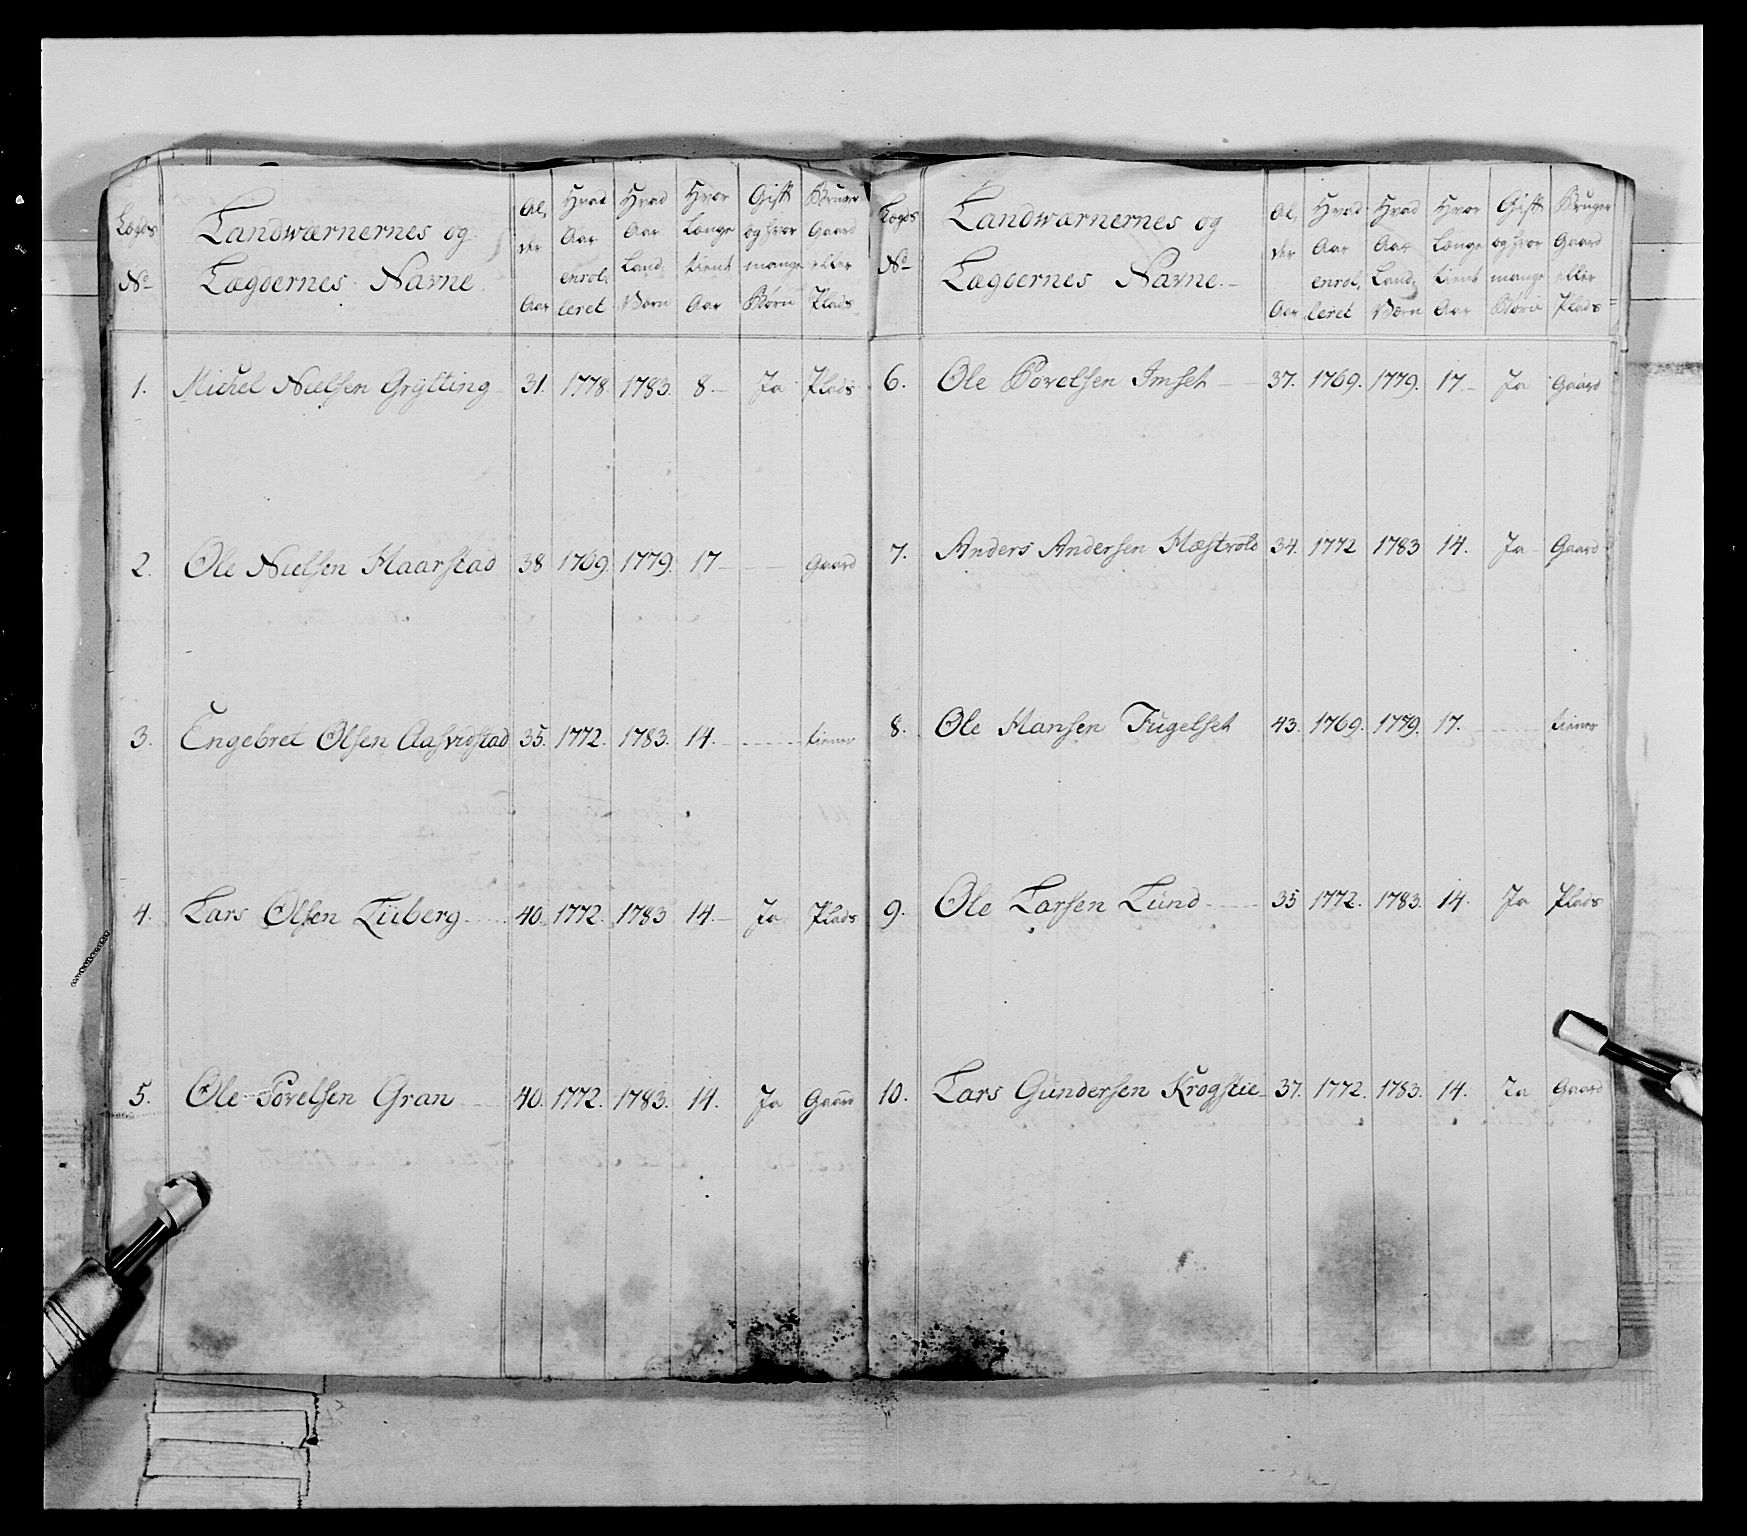 Lægds No
Landwærnernes og
Lægdernes Navne.
Al,
der
Aar
Hvad
Aar
enrol,
leret
Hvad
Aar
Land,
Værn
Hvor
Længe
tient
Aar
Gift
og hvor
mange
Børn
Bruger
Gaard
eller
Plads
1. Michel Nielsen Grytting 31. 1778. 1783. 8. Ja Plads
2. Ole Nielsen Haarstad 38 1769. 1779. 17 Gaard
3. Engebret Olsen 35. 1772. 1783. 14. tiener
4. Lars Olsen Liüberg 40. 1772. 1783 14. Ja Plads
5. Ole Povelsen Gran 40. 1772. 1783. 14. Ja Gaard
Lægds No
Landwærnernes og
Lægdernes Navne.
Al,
der
Aar
Hvad
Aar
enrol,
leret
Hvad
Aar
Land,
Værn
Hvor
Længe
tient
Aar
Gift
og hvor
mange
Børn
Bruger
Gaard
eller
Plads
6. Ole Povelsen Imset 37. 1769. 1779. 17 Ja Gaard
7. Anders Andersen 34. 1772 1783 14. Ja Gaard
8. Ole Hansen Fugelset 43. 1769. 1779. 17. tiener
9. Ole Larsen Lund 35 1772. 1783. 14. Ja Plads
10. Lars Gundersen Krogstie 37. 1772. 1783. 14. Ja Gaard